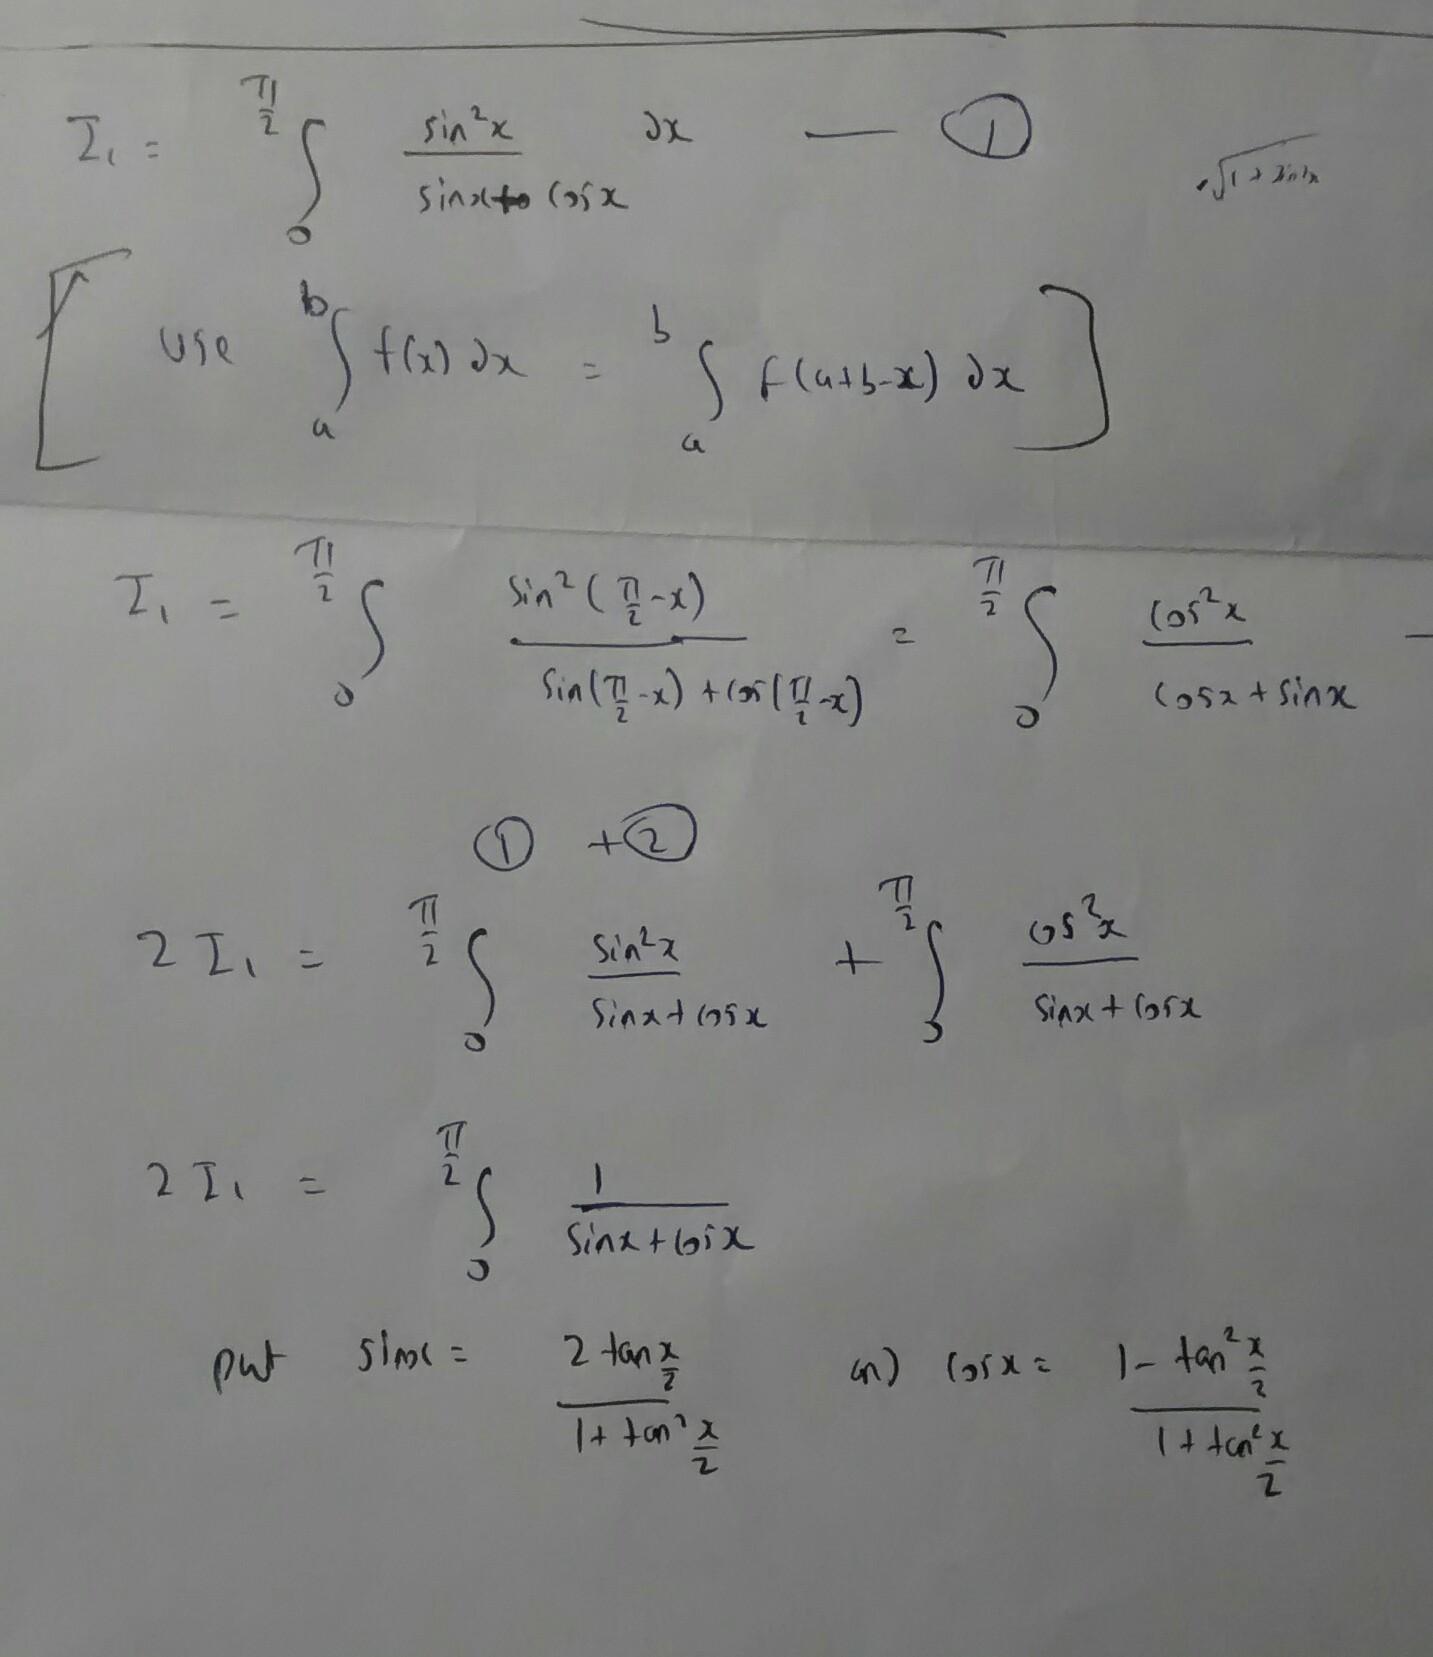 I₁ = ∫₀^(π/2) sin²x / (sinx + cosx) ∂x — ①
√(1 + sin²x
[ use ∫ₐᵇ f(x) ∂x = ∫ₐᵇ f(a+b-x) ∂x ]
I₁ = ∫₀^(π/2) sin²(π/2 - x) / (sin(π/2 - x) + cos(π/2 - x)) = ∫₀^(π/2) cos²x / (cosx + sinx) —
① + ②
2 I₁ = ∫₀^(π/2) sin²x / (sinx + cosx) + ∫₀^(π/2) cos²x / (sinx + cosx)
2 I₁ = ∫₀^(π/2) 1 / (sinx + cosx)
put sinx = 2 tan x/2 / (1 + tan² x/2) cosx = (1 - tan² x/2) / (1 + tan² x/2)